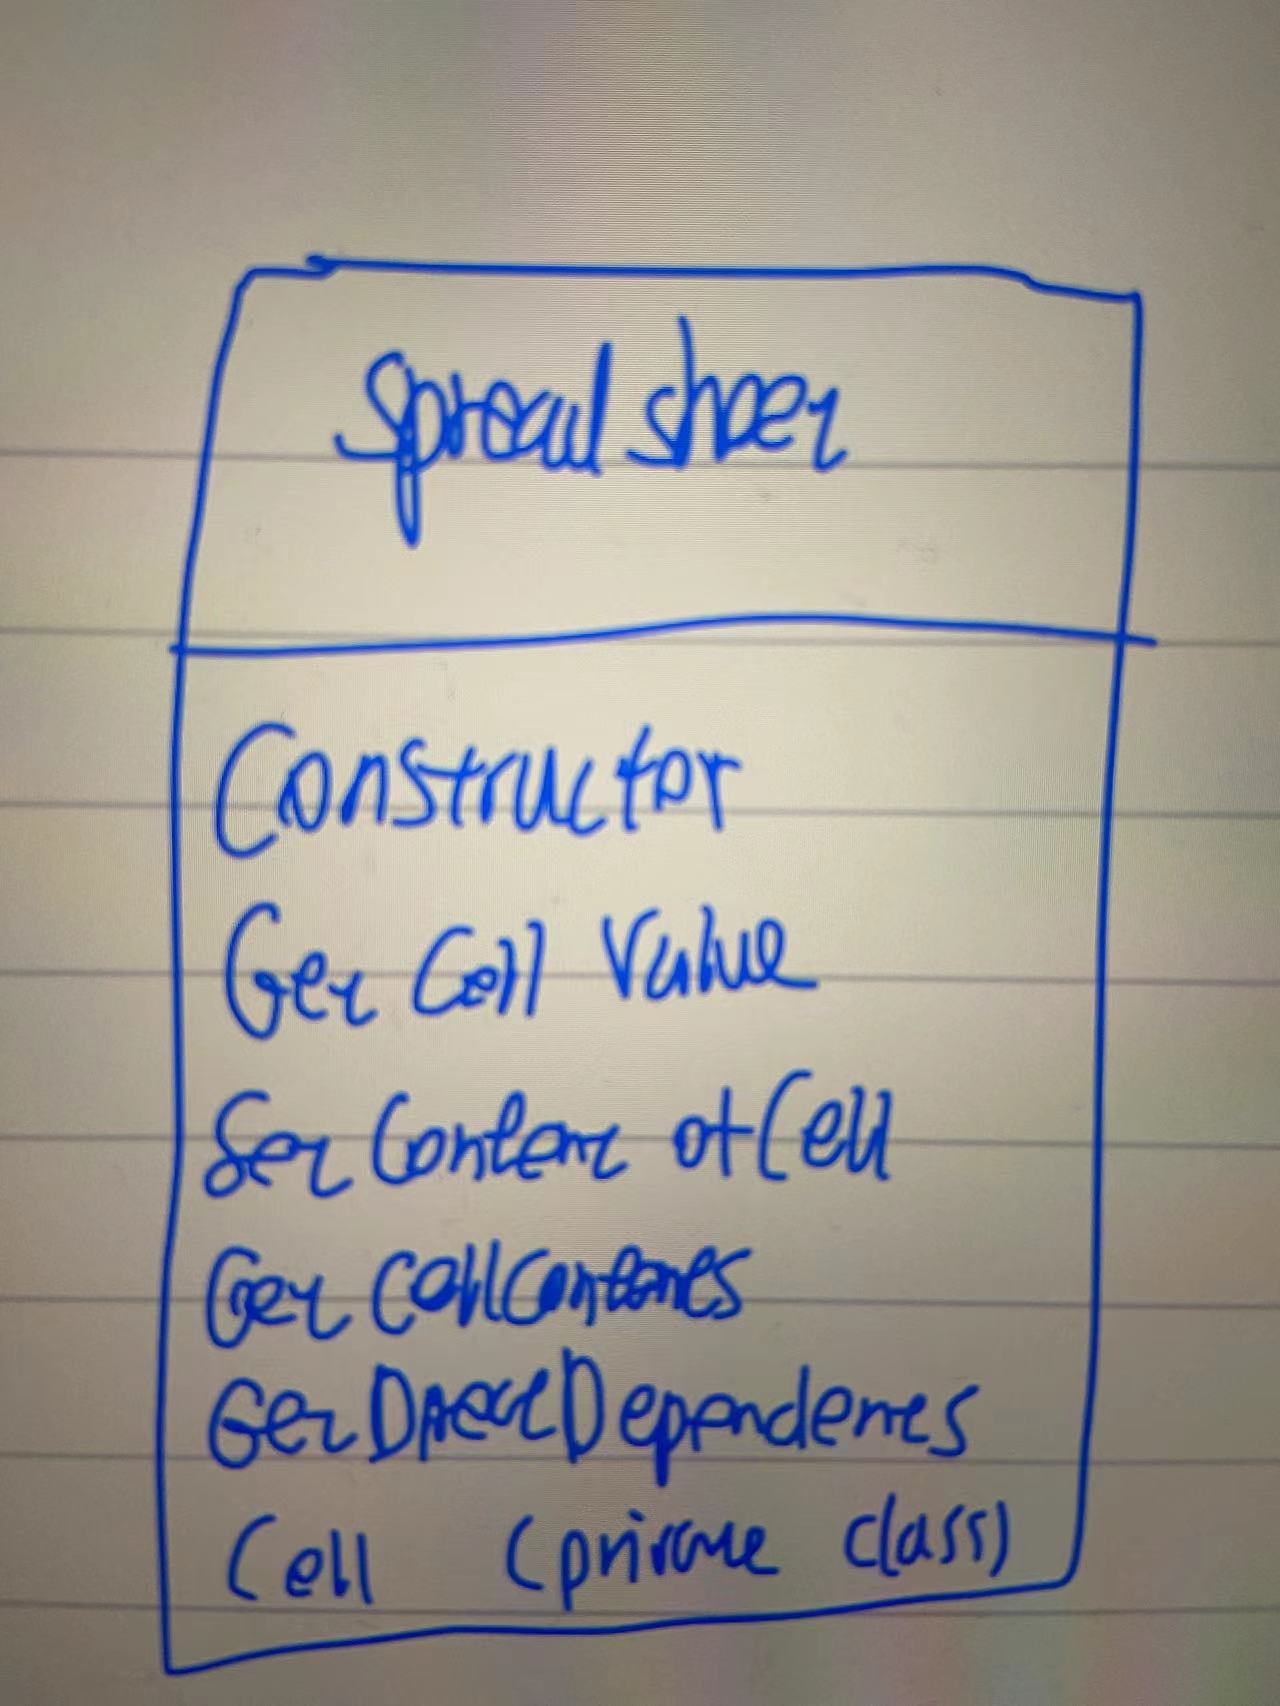 Spread sheet
Constructor
Get Cell Value
Set Content of Cell
Get CellContents
Get Direct Dependents
Cell (private class)